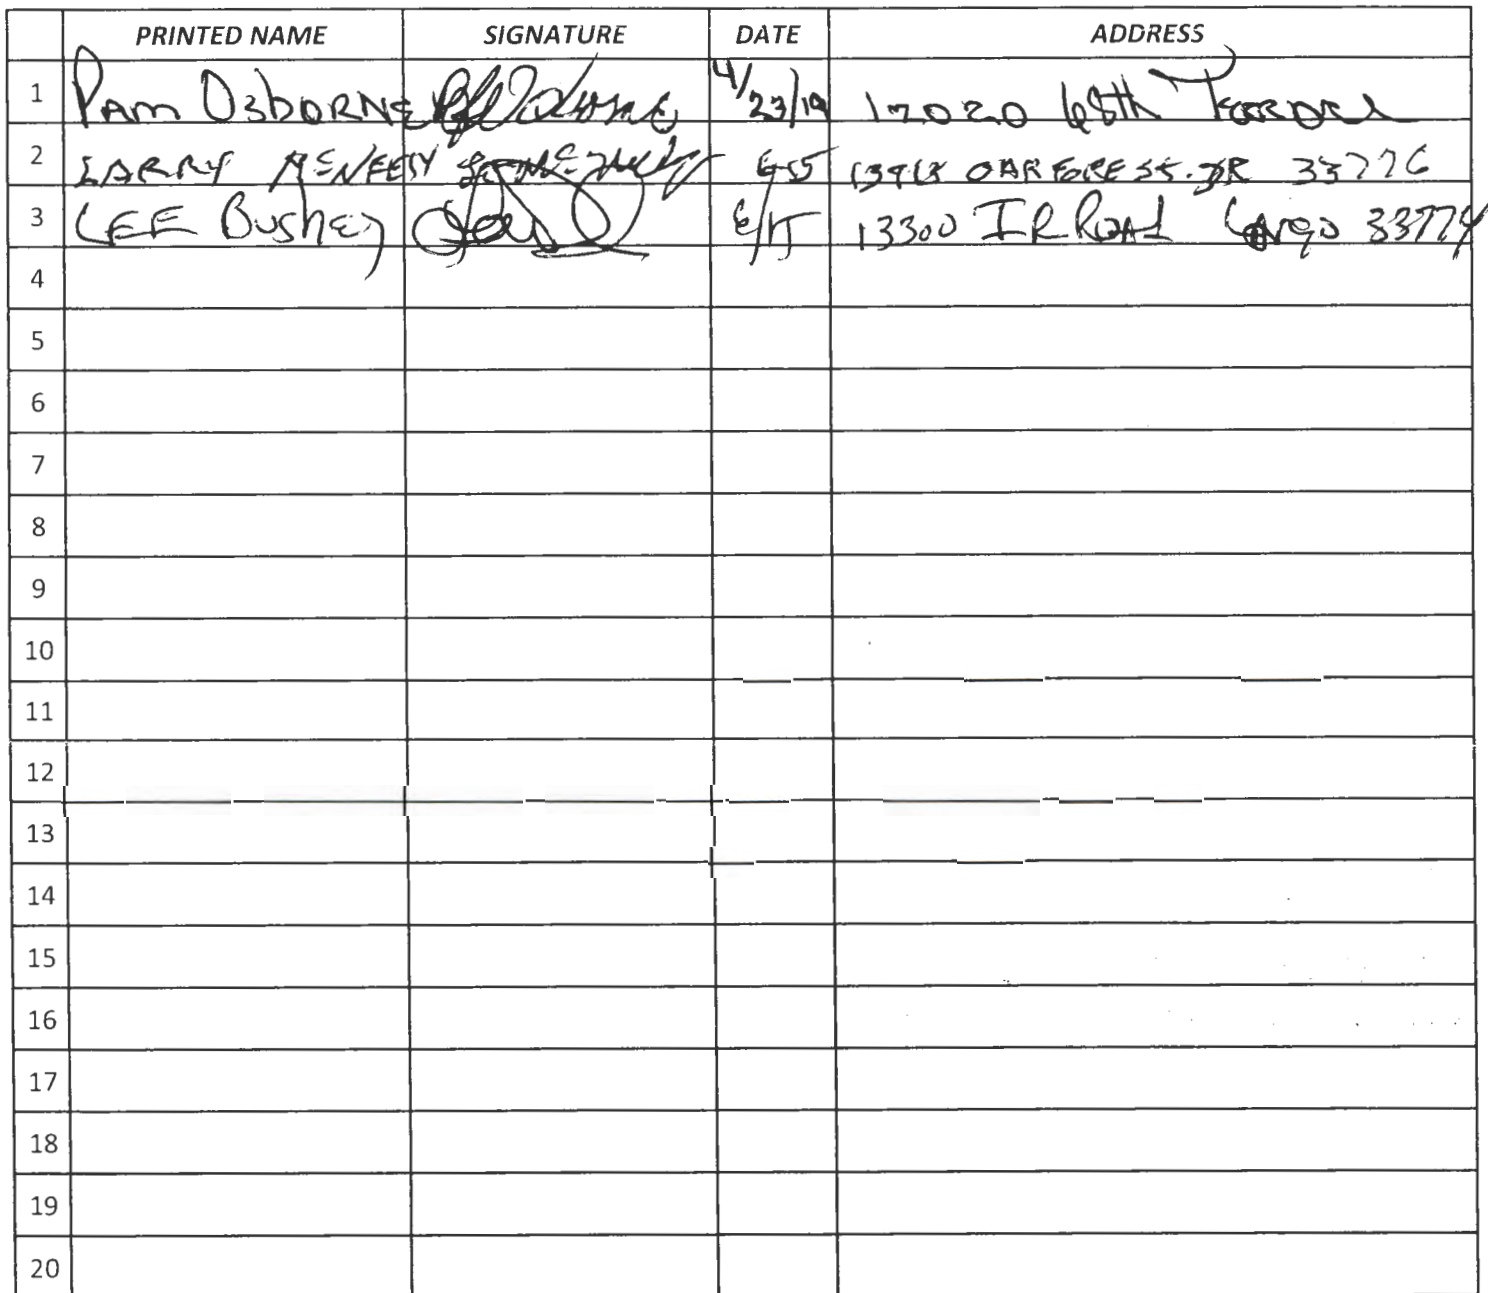 PRINTED NAME SIGNATURE DATE ADDRESS
1 PAM OsbORNE 4/23/19 17020 68th Terrace
2 LARRY MENEELY 33776
3 LEE Bushey 13300 IR ROAd Largo 33774
4
5
6
7
8
9
10
11
12
13
14
15
16
17
18
19
20